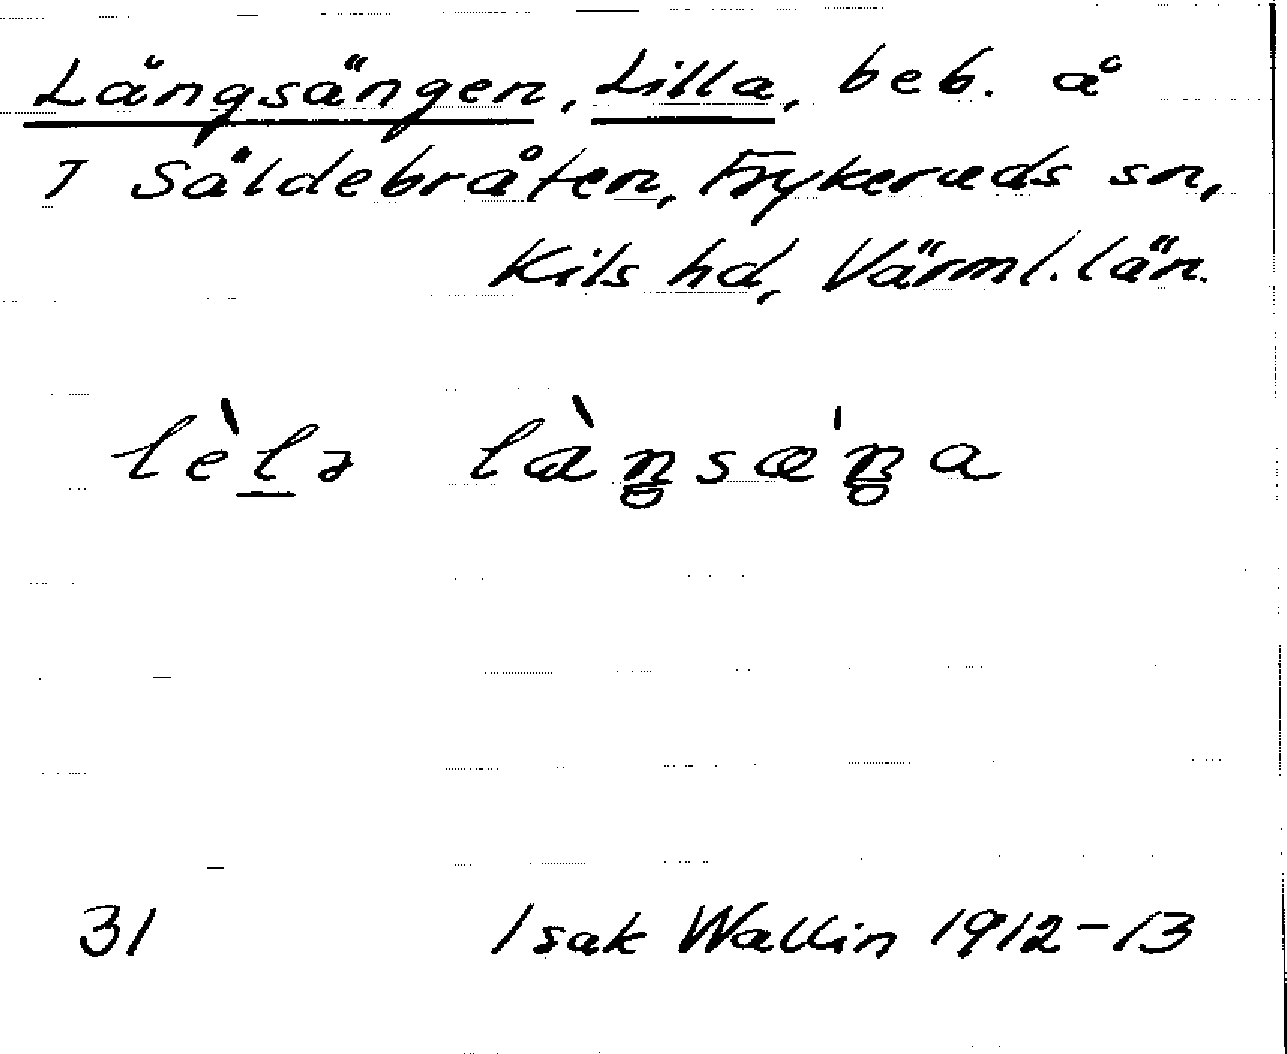 Långsängen, Lilla, beb. å
7 Såldebråten, Frykeruds sn,
Kils hd, Värml. län.
lèlə làŋsæ'ŋa
31 Isak Wallin 1912-13